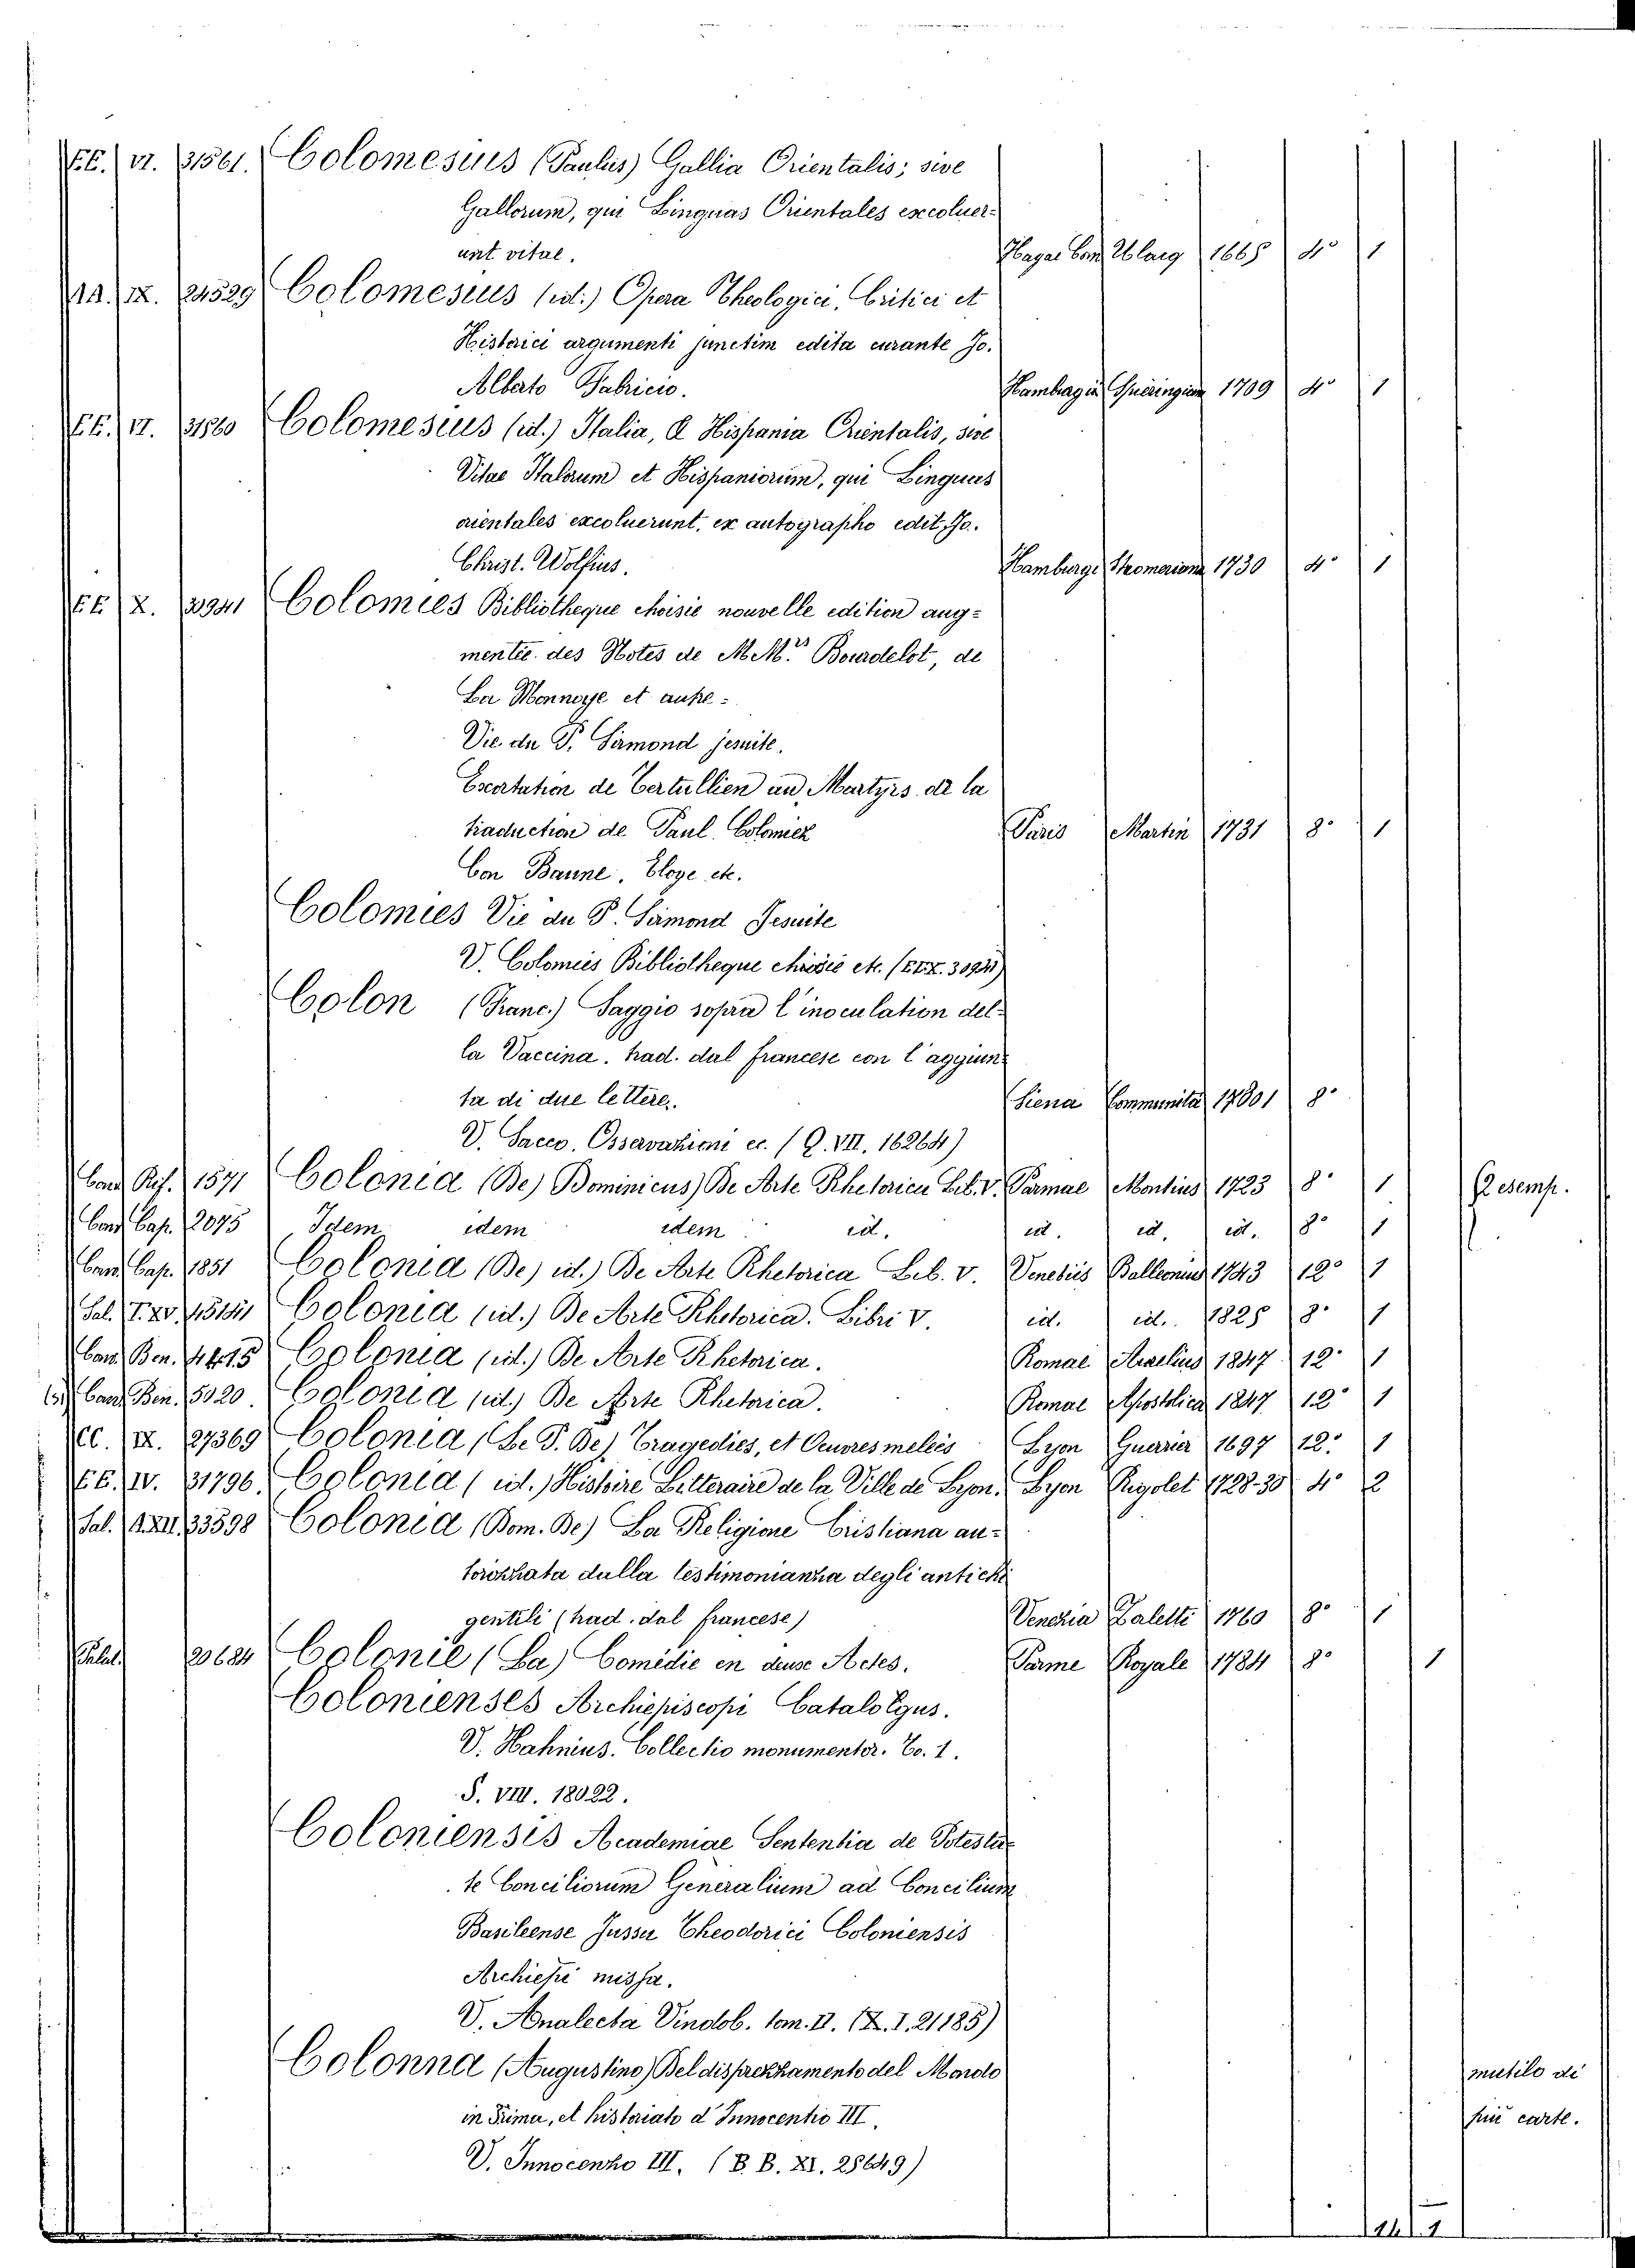 EE. VI. 31561. Colomesius (Paulus) Gallia Orientalis; sive
Gallorum, qui Linguas Orientales excoluer=
unt vitae. Hagae Com. Ulacq 1665 4° 1
AA. IX. 24529 Colomesius (id.) Opera Theologici, Critici et
Historici argumenti junctim edita curante Jo.
Alberto Fabricio. Hamburgi 1709 4° 1
EE. VI. 31560 Colomesius (id.) Italia, & Hispania Orientalis, sive
Vitae Italorum et Hispaniorum, qui Linguas
orientales excoluerunt, ex autographo edit. Jo.
Christ. Wolfius. Hamburgi 1730 4° 1
EE X. Colomies Bibliotheque choisie nouvelle edition aug=
mentée des Notes de M.M.rs Bourdelot, de
La Monnoye et autre:
Vie du P. Sirmond jesuite.
Exortation de Tertullien aux Martyrs de la
traduction de Paul Colomiez Paris Martin 1731 8° 1
Con Baune, Eloge etc.
Colomies Vie du P. Sirmond Jesuite
V. Colomies Bibliotheque choisie etc.
Colon (Franc.) Saggio sopra l'inoculation del=
la Vaccina. trad. dal francese con l'aggiun=
ta di due lettere. Siena Communità 1801 8°
V. Sacco. Osservazioni ec. (Q. VII. 16264)
Cand. Rif. 1571 Colonia (De) Dominicus) De Arte Rhetorica Lib. V. Parmae Montius 1723 8° 1 2 esemp.
Cand. Cap. 2075 Idem idem idem id. id. id. id. 8° 1
Cand. Cap. 1851 Colonia (De) id.) De Arte Rhetorica Lib. V. Venetiis Balleonius 1743 12° 1
Sal. T. XV. 45141 Colonia (id.) De Arte Rhetorica. Libri V. id. id. 1825 8° 1
Cand. Ben. 4415 Colonia (id.) De Arte Rhetorica. Romae Aurelius 1847 12° 1
Cand. Ben. 5120 Colonia (id.) De Arte Rhetorica. Romae Apostolica 1847 12° 1
CC. IX. 27369 Colonia, (Le P. De) Tragedies, et Oeuvres meleés Lyon Guerrier 1697 12° 1
EE. IV. 31796. Colonia (id.) Histoire Litteraire de la Ville de Lyon. Lyon Rigolet 1728-30 4° 2
Sal. A.XII. 33598 Colonia (Dom. De) La Religione Cristiana au=
torizzata dalla testimonianza degli antichi
gentili (trad. dal francese) Venezia Zaletti 1760 8° 1
Palat. 20684 Colonie (La) Comédie en deux Actes. Parme Royale 1784 8° 1
Colonienses Archiepiscopi Catalolgus.
V. Hahnius. Collectio monumentor. To. 1.
S. VIII. 18022.
Coloniensis Academiae Sententia de Potesta=
te Conciliorum Generalium ad Concilium
Basileense Jussu Theodorici Coloniensis
Archiepi missa.
V. Analecta Vindob. tom. II. (Z. I. 21185)
Colonna (Augustino) Del disprezzamento del Mondo mutilo di
in Rima, et historiato d'Innocentio III. più carte.
V. Innocenzo III. (B.B. XI. 25649)